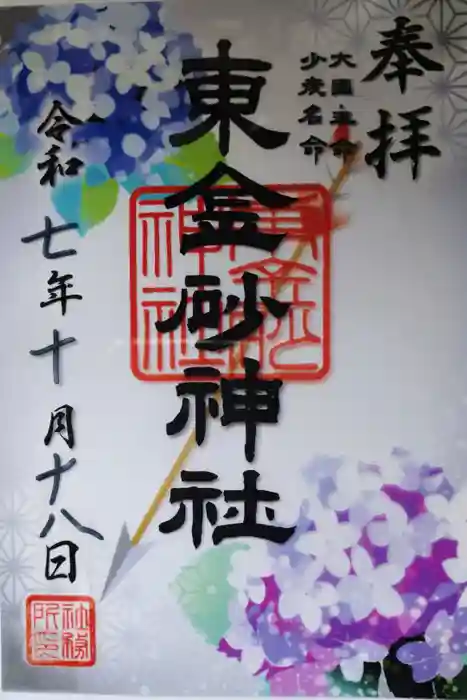 奉拝
大国主命
少彦名命
東金砂神社
令和七年十月十八日
社務
所印